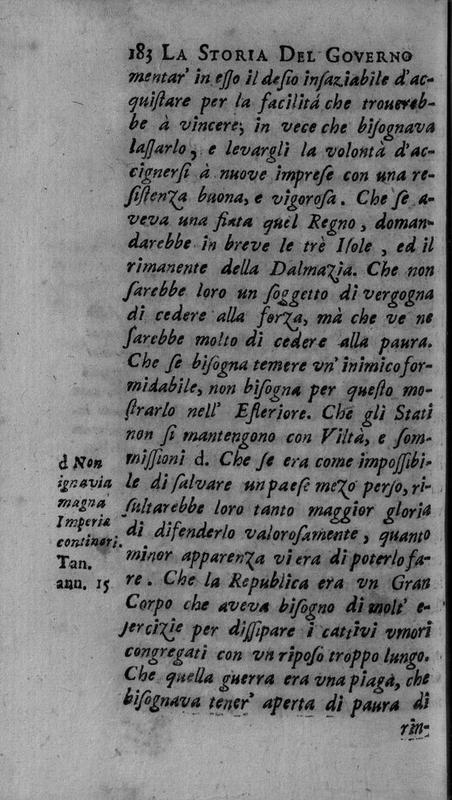 183 LA STORIA DEL GOVERNO
mentar' in eſſo il deſio inſaziabile d'ac-
quiſtare per la facilitá che trouereb-
be à vincere; in vece che biſognava
laſſarlo, e levargli la volontà d'ac-
cignerſi à nuove impreſe con una re-
ſiſtenza buona, e vigoroſa. Che ſe a-
veva una fiata quel Regno, doman-
darebbe in breve le trè Iſole, ed il
rimanente della Dalmazia. Che non
ſarebbe loro un ſoggetto di vergogna
di cedere alla forza, mà che ve ne
ſarebbe molto di cedere alla paura.
Che ſe biſogna temere vn' inimico for-
midabile, non biſogna per queſto mo-
ſtrarlo nell' Eſteriore. Che gli Stati
non ſi mantengono con Viltà, e ſom-
miſſioni d. Che ſe era come impoſſibi-
le di ſalvare un paeſe mezo perſo, ri-
ſultarebbe loro tanto maggior gloria
di difenderlo valoroſamente, quanto
minor apparenza vi era di poterlo fa-
re. Che la Republica era vn Gran
Corpo che aveva biſogno di molt' e-
ſercizie per diſſipare i cattivi vmori
congregati con vn ripoſo troppo lungo.
Che quella guerra era vna piaga, che
biſognava tener' aperta di paura di
rin-
d Non
ignavia
magna
Imperia
contineri.
Tan.
ann. 15